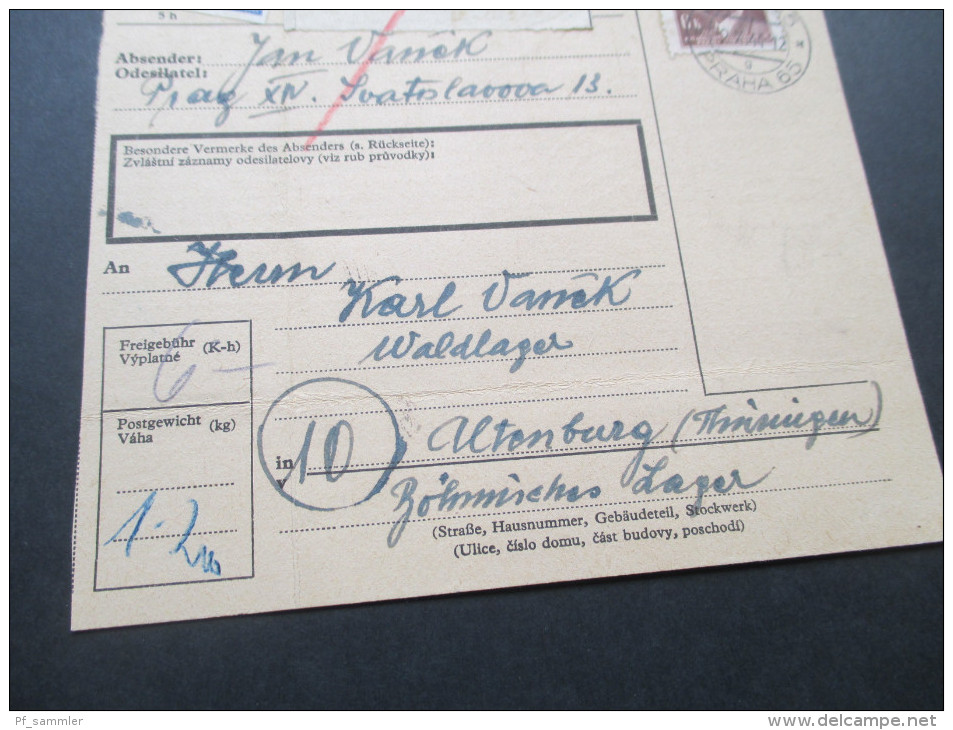 5 h
Absender: Jan Vaněk
Odesilatel:
Prag XIV. Svatoslavova 13.
PRAHA 65
Besondere Vermerke des Absenders (s. Rückseite):
Zvláštní záznamy odesilatelovy (viz rub průvodky):
An Herrn
Karl Vaněk
Waldlager
Freigebühr (K-h)
Výplatné
6 -
Postgewicht (kg)
Váha
in 10 Altenburg (Thüringen)
v
Böhmisches Lager
1·2
(Straße, Hausnummer, Gebäudeteil, Stockwerk)
(Ulice, číslo domu, část budovy, poschodí)
Pf_sammler
www.delcampe.net